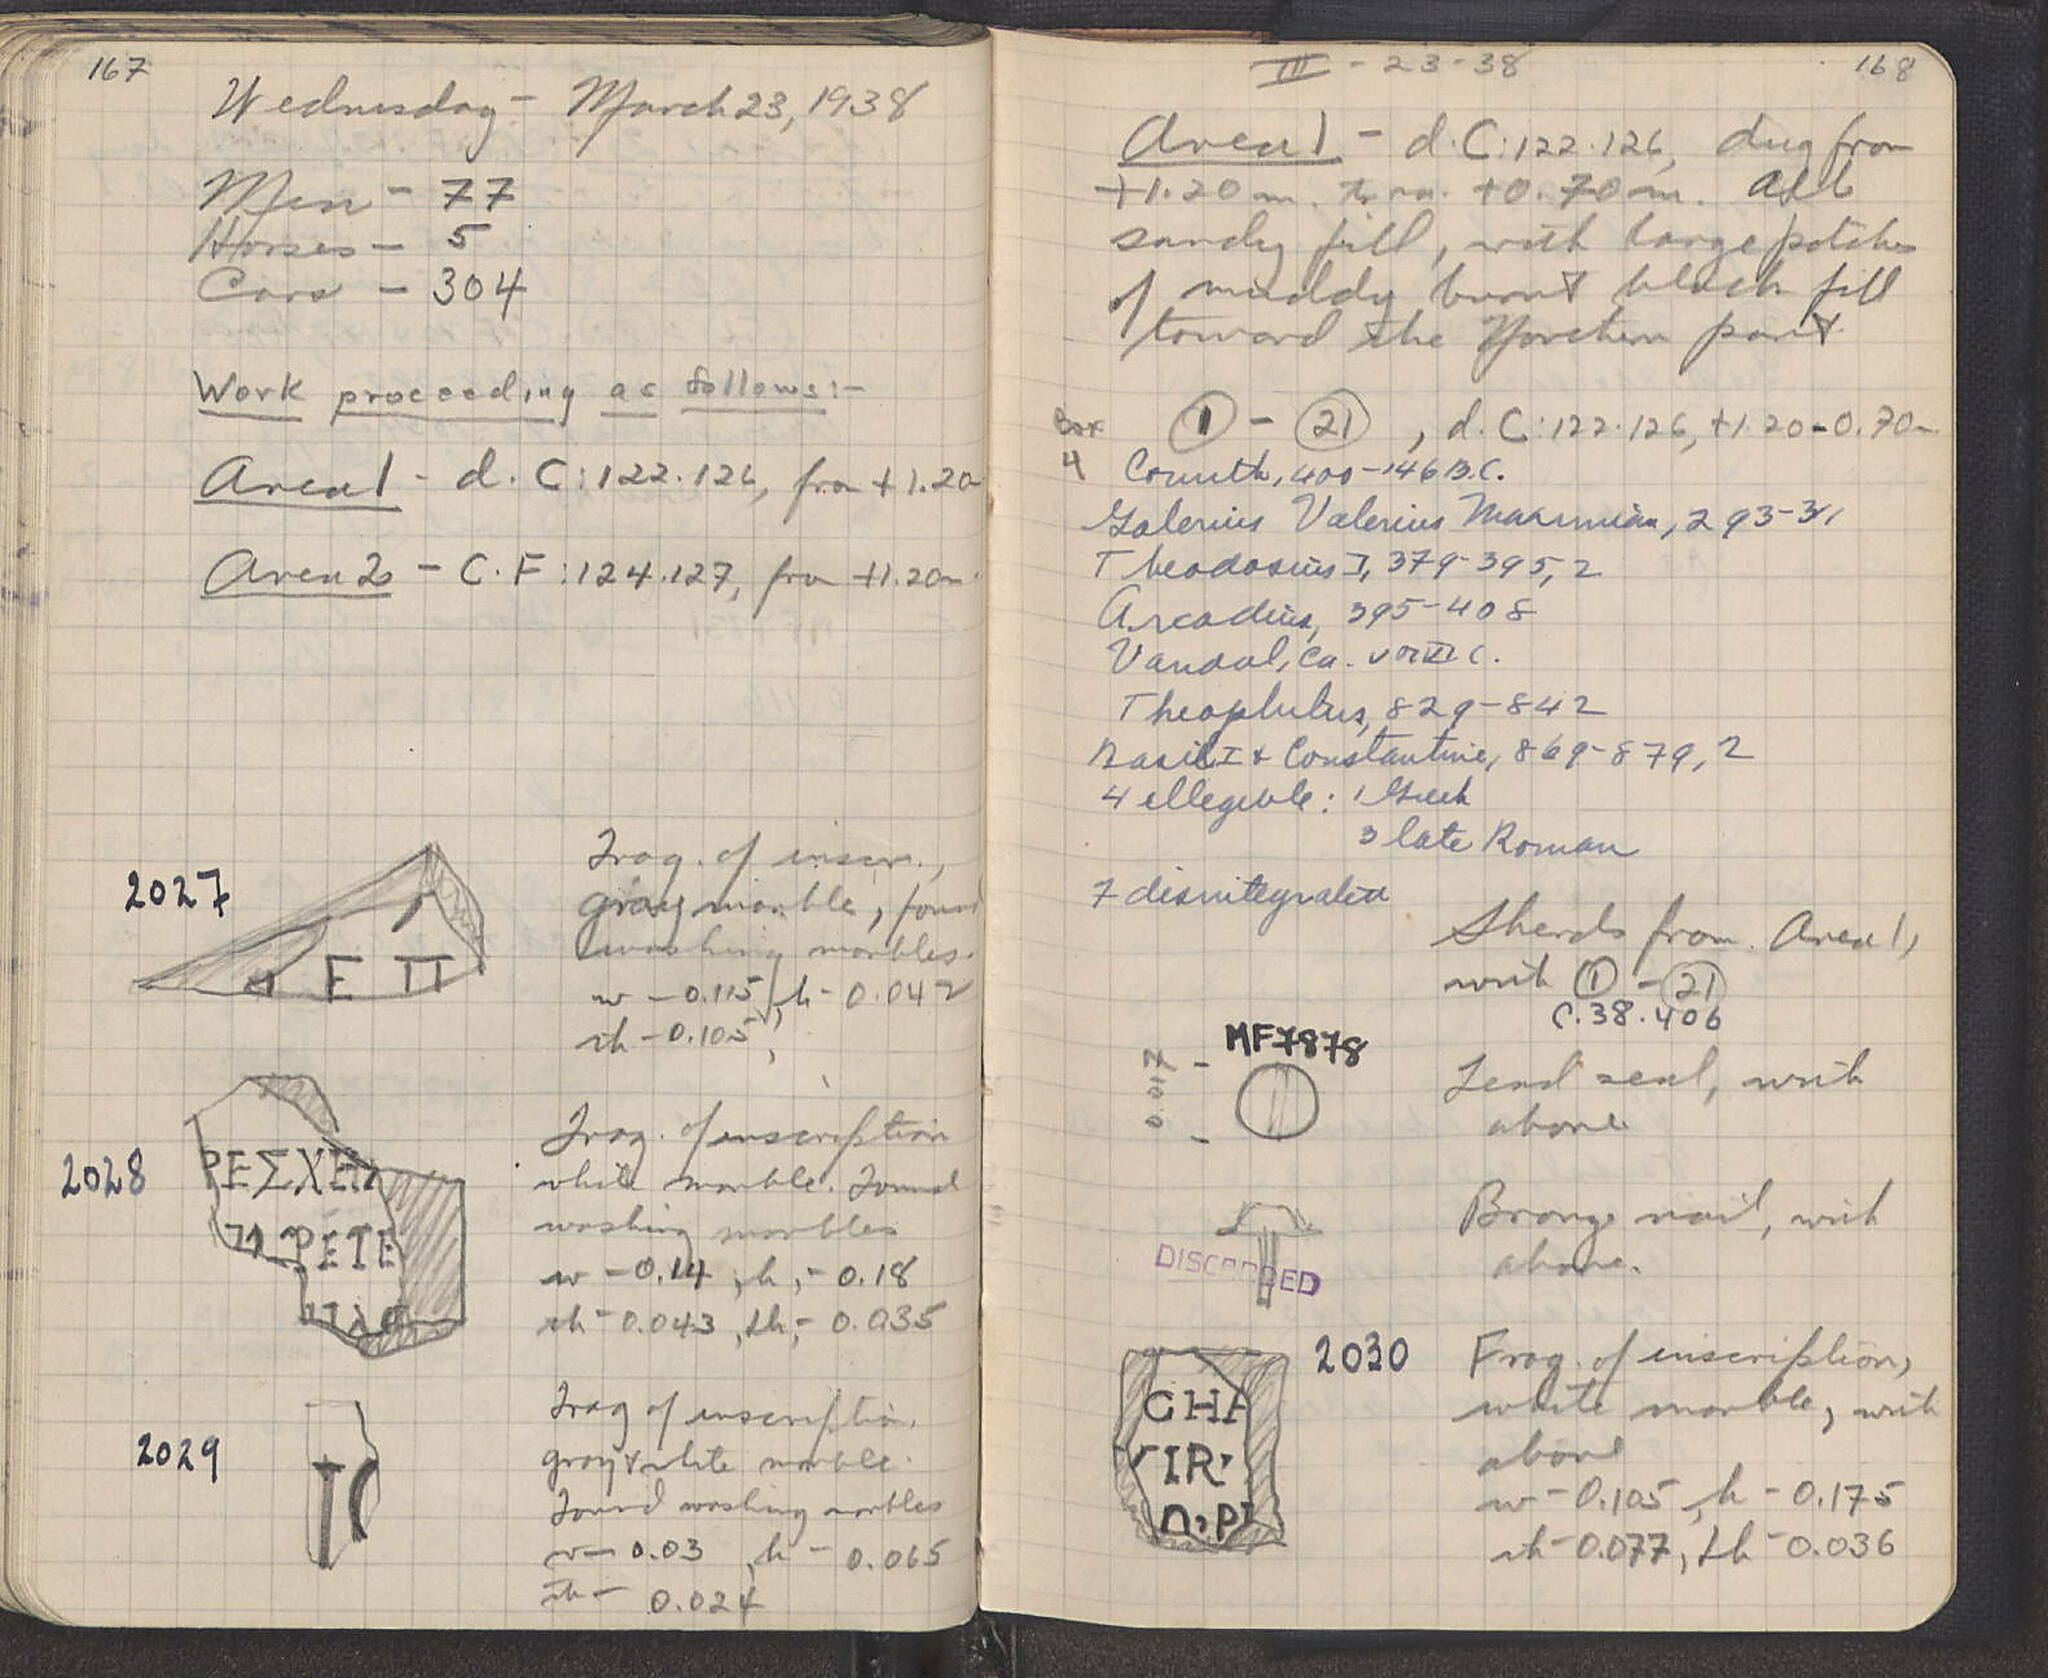 167
Wednesday - March 23, 1938
Men - 77
Horses - 5
Cars - 304
Work proceeding as follows:-
Area 1 - d. C:122.126, from +1.20m
Area 2 - C.F:124.127, from +1.20m.
2027
Frag. of inscr.,
gray marble, found
washing marbles.
w - 0.115, h - 0.042
th - 0.105,
Ε Π
2028
Frag. of inscription
white marble. Found
washing marbles
w - 0.14, h, - 0.18
th - 0.043, lh, - 0.035
ΡΕΣΧΕ
ΡΕΤΕ
2029
Frag of inscription
gray & white marble.
Found washing marbles
w - 0.03, h - 0.065
th - 0.024
III - 23 - 38
168
Area 1 - d. C:122.126, dug from
+1.20m. to ca. +0.70m. All
sandy fill, with large patches
of muddy burnt black fill
toward the Northern part
Box 4
1 - 21, d. C:122.126, +1.20-0.70m
Corinth, 400-146 B.C.
Galerius Valerius Maximian, 293-311
Theodosius I, 379-395, 2
Arcadius, 395-408
Vandal, ca. V or VI c.
Theophilus, 829-842
Basil I + Constantine, 869-879, 2
4 illegible: 1 Greek
3 late Roman
7 disintegrated
Sherds from Area 1,
with 1 - 21
C.38.406
MF7878
0.017
Lead seal, with
above
Bronze nail, with
above.
DISCARDED
2030
Frag. of inscription,
white marble, with
above
w - 0.105, h - 0.175
th - 0.077, lh - 0.036
CHA
IR